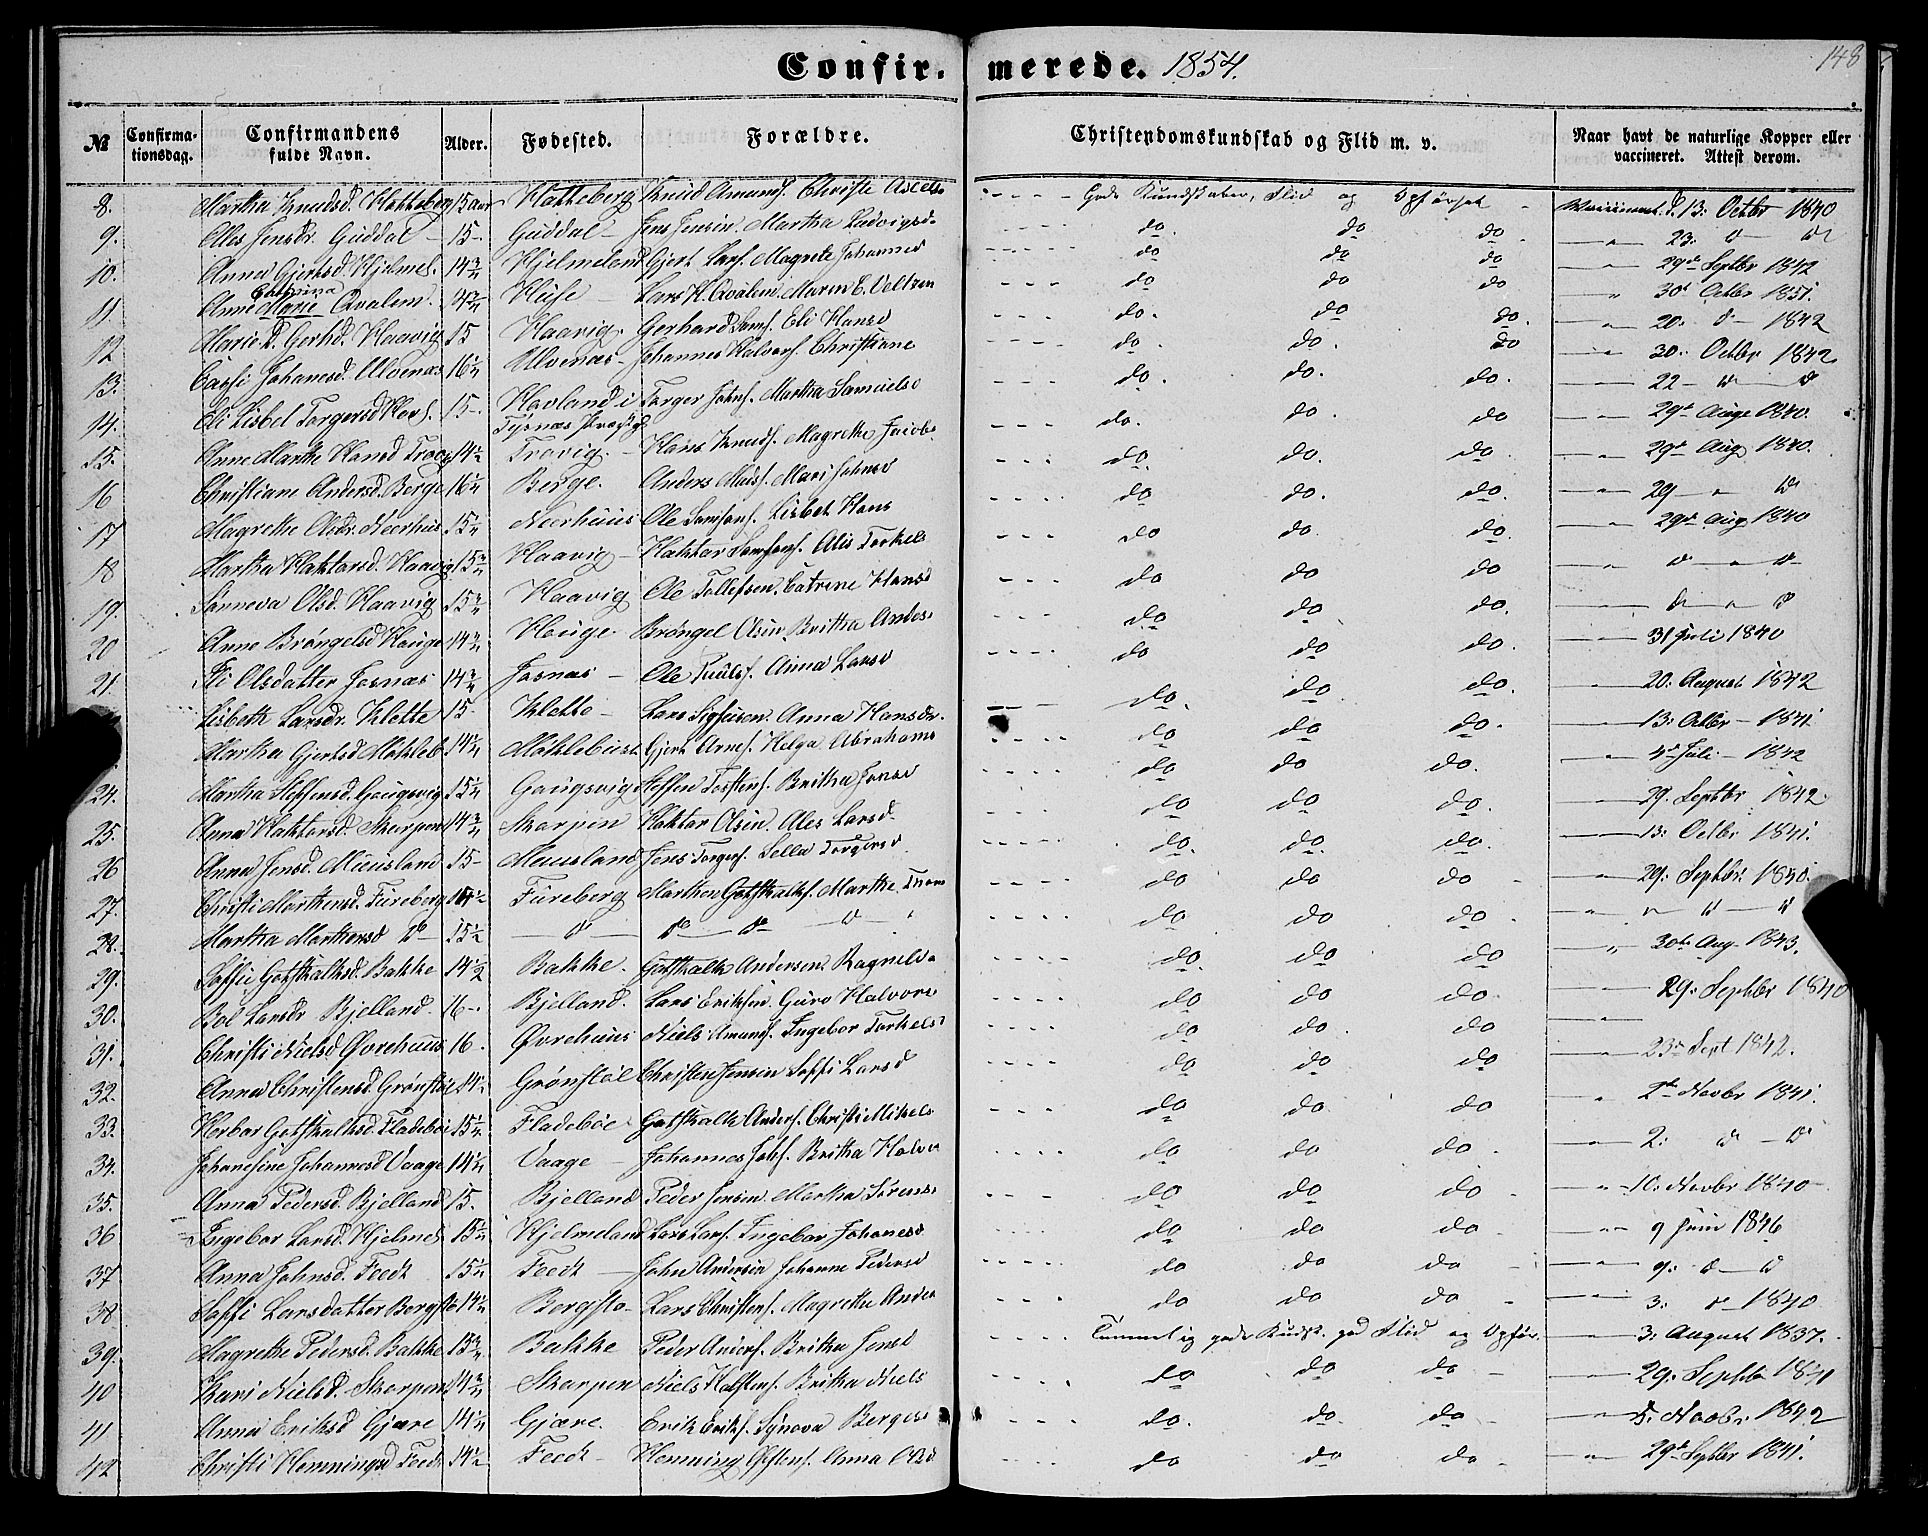 148
Confirmerede. 1854.
№ Confirmationsdag. Confirmandens fulde Navn. Alder. Fødested. Forældre. Christendomskundskab og Flid m. v. Naar havt de naturlige Kopper eller vaccineret. Attest derom.
8. Martha Knudsd. Hatteberg 15 aar Hatteberg Knud Amunds. Christi Axels. Gode Kundskaber, Flid og Opførsel Vaccineret d. 13: Octbr 1840
9. Olles Jensdr. Guddal 15 Guddal Jens Jensen. Martha Ludvigsd. do. do do. 23: d d
10. Anna Gjertsd. Hjelmel. 14 3/4 Hjelmeland Gjert Lars. Magrete Johannsd do do do 29de Septbr 1842
11. Ane Cathrina Marie Qvalem. 14 3/4 Huse Lars H. Qvalem. Maren E. Veltzen do do do 30d Octbr 1851.
12 Marie D. Gerhd. Haavig 15 Haavig. Gerhard Sams. Eli Hansd do. do do. 20: d 1842
13. Johanesd. Alvenæs 16 1/4 Alvenæs Johannes Halvors. Christiane do. do. do 30: Octbr 1842.
14. Eli Lisbet Torgersd Havl. 15 Havland i Tysnæs Præstg. Torger Johns. Martha Samuelsd do. do. do. 22 d d
15. Anne Marthe Hansd Trovig 14 1/2 Trovig. Hans Knuds. Magrethe Jacobs. do. do. do 29de Aug 1840.
16 Christiane Andersd. Berge 16 1/4 Berge. Anders Mads. Mari Johnsd do. do. do. 29de Aug 1840.
17 Magrethe Olsdr. Neerhus 15 1/4 Neerhuus Ole Samsons. Lisbet Hans do do. do. 29 d
18 Martha Haktorsd. Haavig 15 3/4 Haavig Haktor Samsons. Alis Torkels do do. do. 29de Aug 1840
19. Sønneva Olsd. Haavig 15 3/4 Haavig Ole Tollefsen. Catrine Hansd do do do d d
20 Anne Brøngelsd Hauge 14 3/4 Hauge. Brøngel Olsen Britha Anders. do do do. d d
21. Eli Olsdatter Josnæs 14 3/4 Josnæs Ole Pauls. Anna Larsd do do do. 31 Juli 1840
Lisbeth Larsdr. Klette 15 Klette Lars Sigfusen. Anna Hansdr. do. do do. 20: August 1842
Martha Gjertsd. Møkleb 14 1/4 Møklebust Gjert Arnes. Helga Abrahams do do do. 13: Octbr 1841
24. Martha Steffensd. Gaugsvig 15 1/4 Gaugsvig Steffen Torstens. Britha Jonsd do do do. 4d Juli 1842
25. Anna Haktorsd. Skorpen 14 3/4 Skorpen Haktor Olsen. Ales Larsd. do do do. 29. Septbr 1842.
26 Anna Jensd. Muusland 15 Muusland Jens Torgers. Sella Torgersd do. do. do. 13: Octbr 1841.
27. Christi Marthensd. Fureberg 16 1/2 Fureberg Marthen Gotskalks. Marthe Thom do do do 29: Septbr. 1840.
28. Martha Marthensd do 15 1/2 d do do d do do do. d d
29. Soffie Gotskalksd. Bakke 14 1/2 Bakke. Gotskalk Andersen. Ragnild do. do do 30te Aug. 1843.
30. Bol Larsdr Bjelland 16 Bjelland. Lars Eriksen. Guro Halvors do do do. 29: Septbr 1840
31. Christi Nielsd Øvrehuus 16. Øvrehuus Niels Amunds. Ingebor Torkels do do. do
32. Anna Christensd. Grønstøl 14 1/2 Grønstøl Christen Jensen Soffi Larsd do do do 23de Sept 1842.
33. Herbor Gotskalksd. Fladebøe 15 1/4 Fladebøe Gotskalk Anders. Christi Mikels do do do 2de Novbr 1841.
34. Johanesine Johannesd Vaage 14 1/4 Vaage Johannes Johs. Britha Halvo do do do. 2: d d
35. Anna Pedersd. Bjelland 15. Bjelland Peder Jensen. Martha Sørens. do do do 10: Novbr 1840
36 Ingebor Larsd. Hjelmel 15 1/4 Hjelmeland Lars Lars. Ingebor Johanesd. do do do 9 Juni 1846
37 Anna Johnsd. Feedt 15 1/4 Feedt John Andersen Johanne Pedersd do do do 9: d d
38 Soffi Larsdatter Bergstø 14 1/4 Bergstø Lars Christens. Magrethe Anders do do do 3: d 1840
39. Magrethe Pedersd. Bakke 15 3/4 Bakke Peder Anders. Britha Jensd Temmelig gode Kundsk. god Flid og Opfør. 3: August 1837.
40 Kari Nielsd. Skorpen 14 3/4 Skorpen Niels Halstens. Britha Niels do do do 29: Septbr 1841
41 Anna Eriksd Gjære 14 1/4 Gjære. Erik Eriks. Synova Berges do. do. do 5: Novbr. 1842
42 Christi Hemmingsd Feedt 14 1/2 Feedt Hemming Anna Olsd do do do. 29de Septbr 1841.